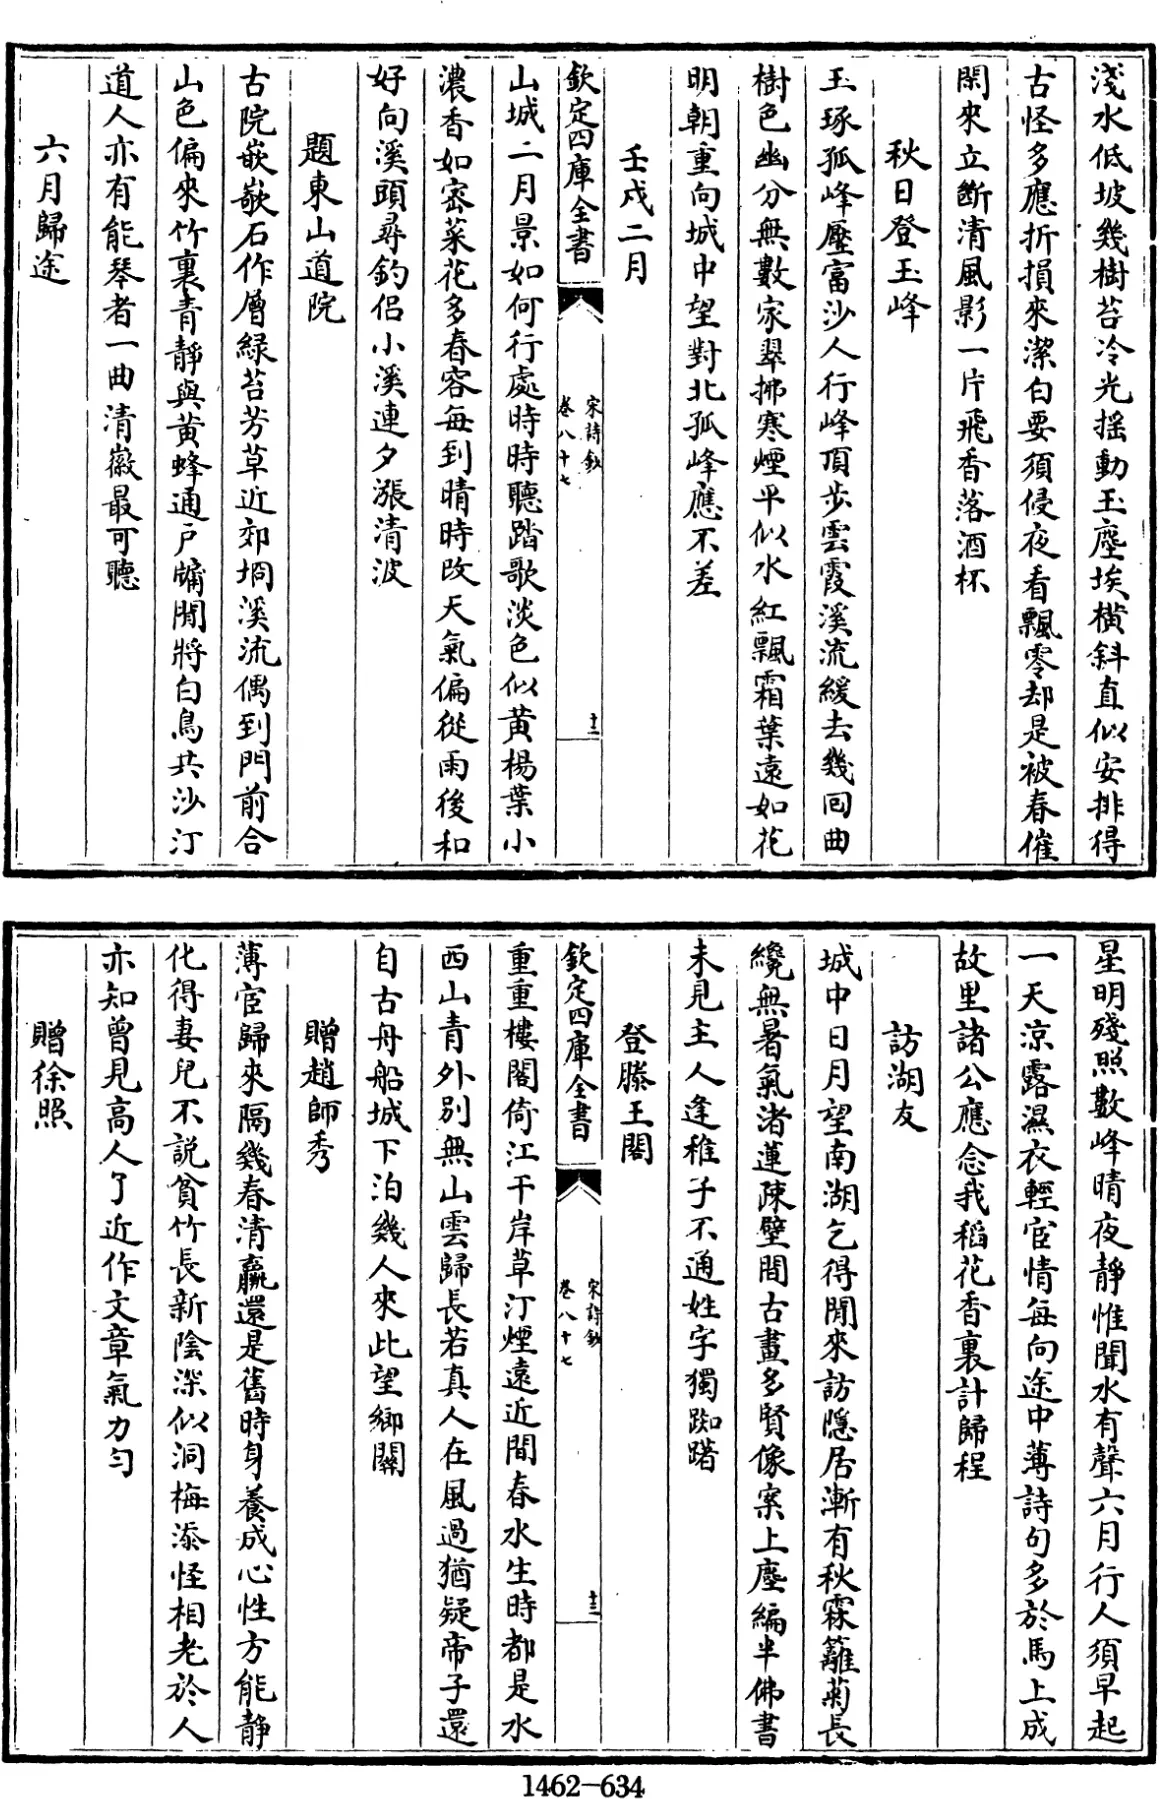 淺水低坡幾樹苔冷光搖動玉塵埃横斜直似安排得
古怪多應折損來潔白要須侵夜看飄零却是被春催
閑來立斷清風影一片飛香落酒杯
秋日登玉峰
玉琢孤峰壓富沙人行峰頂步雲霞溪流緩去幾囘曲
樹色幽分無數家翠拂寒煙平似水紅飄霜葉逺如花
明朝重向城中望對北孤峰應不差
壬戌二月
欽定四庫全書
宋詩鈔
卷八十七
十二
山城二月景如何行處時時聽踏歌淡色似黄楊葉小
濃香如宻菜花多春容每到晴時改天氣偏從雨後和
好向溪頭尋釣侣小溪連夕漲清波
題東山道院
古院嵌嶔石作層緑苔芳草近郊坰溪流偶到門前合
山色偏來竹裏青靜與黄蜂通户牖閒將白鳥共沙汀
道人亦有能琴者一曲清徽最可聽
六月歸途
星明殘照數峰晴夜静惟聞水有聲六月行人須早起
一天涼露濕衣輕宦情每向途中薄詩句多於馬上成
故里諸公應念我稻花香裏計歸程
訪湖友
城中日月望南湖乞得閒來訪隱居漸有秋霖籬菊長
纔無暑氣渚蓮疎壁間古畫多賢像案上塵編半佛書
未見主人逢稚子不通姓字獨踟躇
登滕王閣
欽定四庫全書
宋詩鈔
卷八十七
十三
重重樓閣倚江干岸草汀煙逺近間春水生時都是水
西山青外别無山雲歸長若真人在風過猶疑帝子還
自古舟船城下泊幾人來此望鄉關
贈趙師秀
薄宦歸來隔幾春清羸還是舊時身養成心性方能静
化得妻兒不説貧竹長新陰深似洞梅添怪相老於人
亦知曾見高人了近作文章氣力匀
贈徐照
1462-634